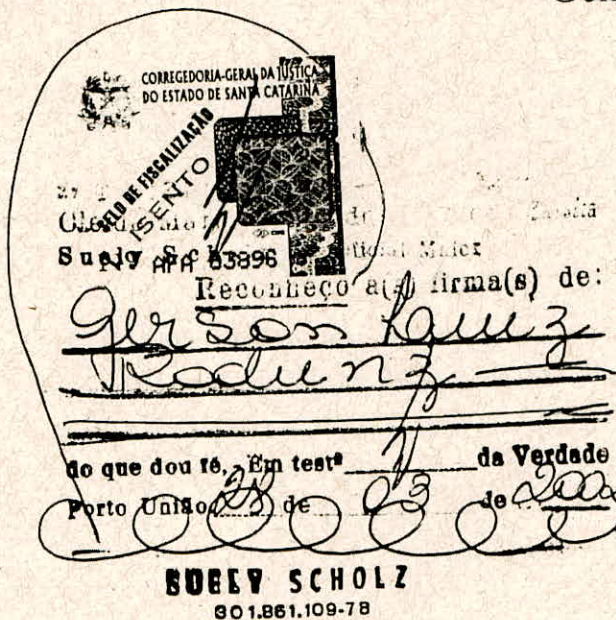 CORREGEDORIA-GERAL DA JUSTIÇA
DO ESTADO DE SANTA CATARINA
SELO DE FISCALIZAÇÃO
ISENTO
Suely
AFA 03896
Maior
Reconheço a(s) firma(s) de:
Gerson
Radunz
do que dou fé, Em testª da Verdade
Porto União 28 de 03 de 2000
SUELY SCHOLZ
301.861.109-78